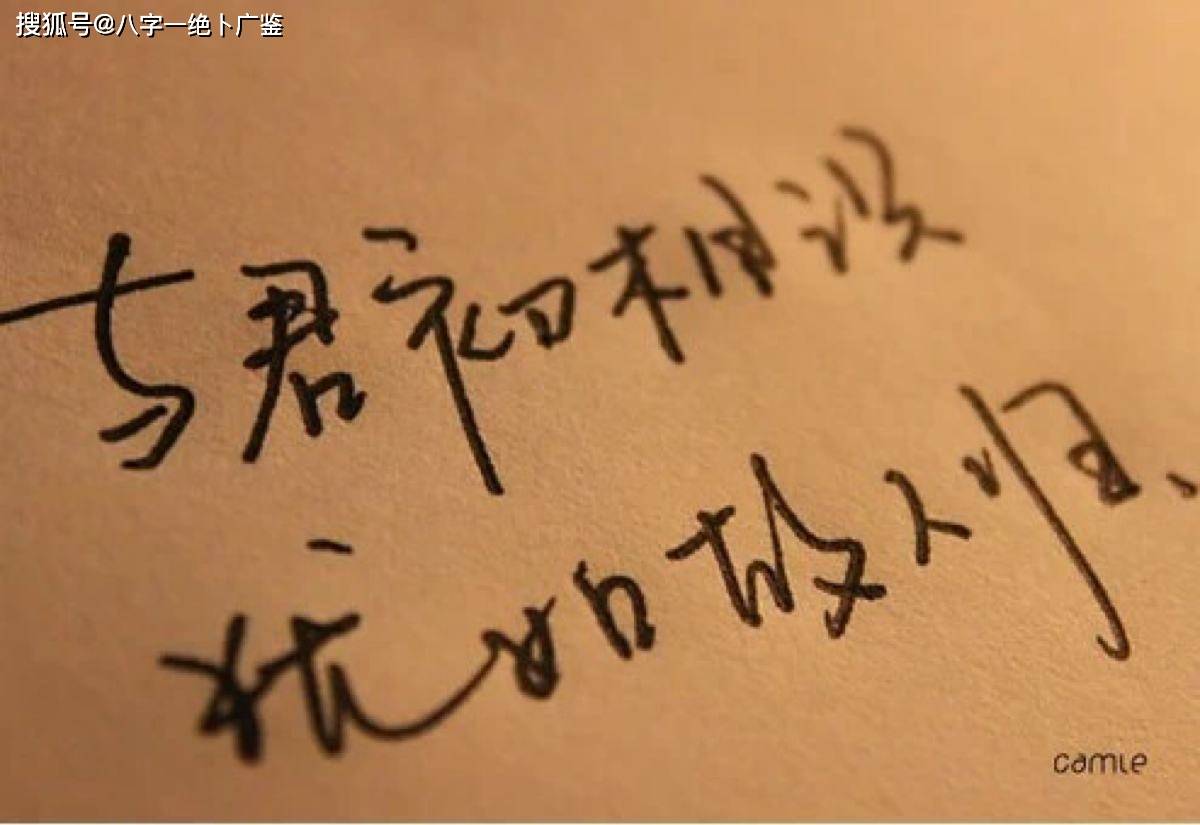 搜狐号@八字一绝卜广鉴
与君初相识
犹如故人归、
camle